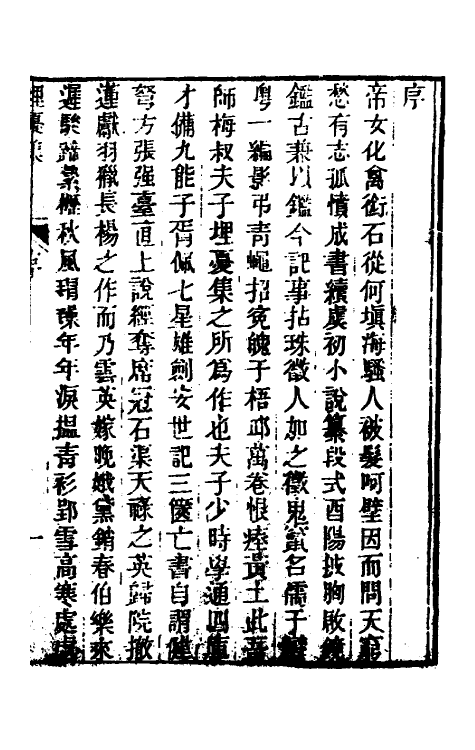 序
帝女化禽銜石從何塡海騷人被髮呵壁因而問天窮
愁有志孤憤成書續虞初小說纂段式酉陽披胸啟鏡
鑑古兼以鑑今記事拈珠徵人加之徵鬼竄名儒子
粵一編影弔青蠅招寃魄子梧邱萬卷恨瘞黃土此吾
師梅叔夫子埋憂集之所爲作也夫子少時學通四庫
才備九能子胥佩七星雄劍安世記三篋亡書自謂健
弩方張强臺直上說經奪席冠石渠天祿之英歸院撤
蓮獻羽獵長楊之作而乃雲英嫁晚娥黛銷春伯樂來
遲駿蹄櫪秋風年年淚搵青衫郢雪高寒處
埋憂集 序 一